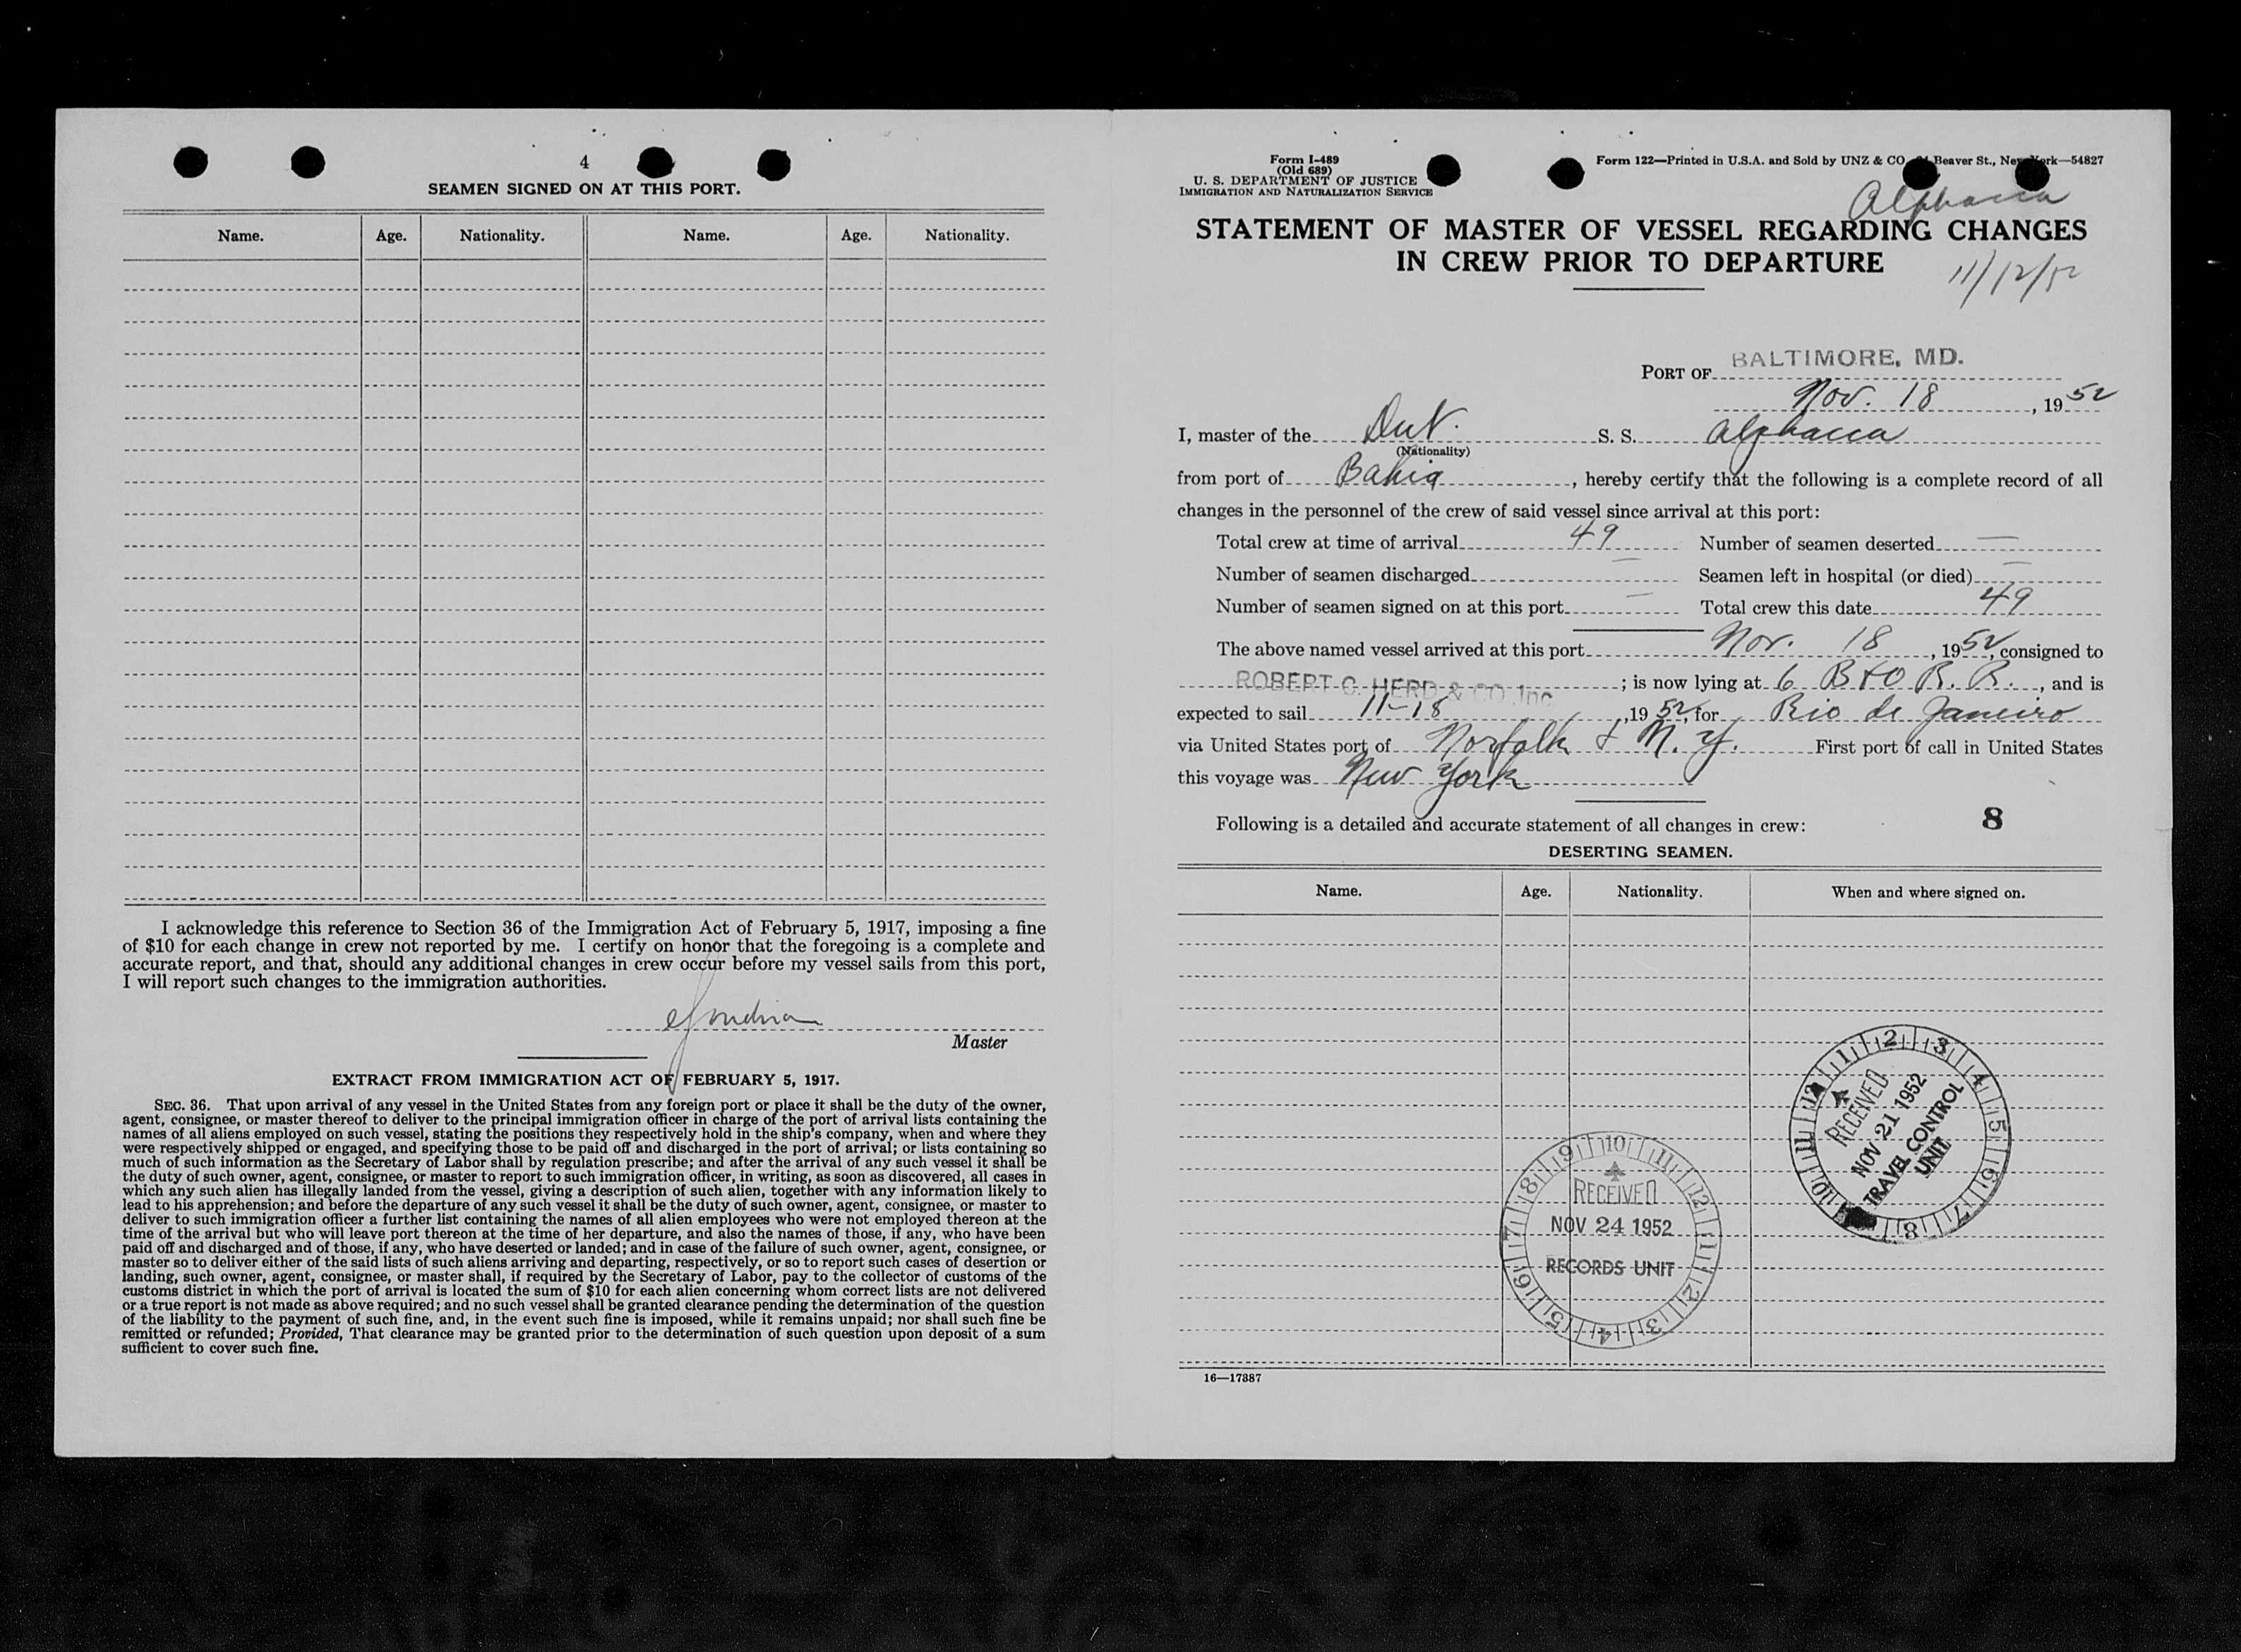 4
SEAMEN SIGNED ON AT THIS PORT.
Name. Age. Nationality. Name. Age. Nationality.
I acknowledge this reference to Section 36 of the Immigration Act of February 5, 1917, imposing a fine
of $10 for each change in crew not reported by me. I certify on honor that the foregoing is a complete and
accurate report, and that, should any additional changes in crew occur before my vessel sails from this port,
I will report such changes to the immigration authorities.
Master
EXTRACT FROM IMMIGRATION ACT OF FEBRUARY 5, 1917.
SEC. 36. That upon arrival of any vessel in the United States from any foreign port or place it shall be the duty of the owner,
agent, consignee, or master thereof to deliver to the principal immigration officer in charge of the port of arrival lists containing the
names of all aliens employed on such vessel, stating the positions they respectively hold in the ship's company, when and where they
were respectively shipped or engaged, and specifying those to be paid off and discharged in the port of arrival; or lists containing so
much of such information as the Secretary of Labor shall by regulation prescribe; and after the arrival of any such vessel it shall be
the duty of such owner, agent, consignee, or master to report to such immigration officer, in writing, as soon as discovered, all cases in
which any such alien has illegally landed from the vessel, giving a description of such alien, together with any information likely to
lead to his apprehension; and before the departure of any such vessel it shall be the duty of such owner, agent, consignee, or master to
deliver to such immigration officer a further list containing the names of all alien employees who were not employed thereon at the
time of the arrival but who will leave port thereon at the time of her departure, and also the names of those, if any, who have been
paid off and discharged and of those, if any, who have deserted or landed; and in case of the failure of such owner, agent, consignee, or
master so to deliver either of the said lists of such aliens arriving and departing, respectively, or so to report such cases of desertion or
landing, such owner, agent, consignee, or master shall, if required by the Secretary of Labor, pay to the collector of customs of the
customs district in which the port of arrival is located the sum of $10 for each alien concerning whom correct lists are not delivered
or a true report is not made as above required; and no such vessel shall be granted clearance pending the determination of the question
of the liability to the payment of such fine, and, in the event such fine is imposed, while it remains unpaid; nor shall such fine be
remitted or refunded; Provided, That clearance may be granted prior to the determination of such question upon deposit of a sum
sufficient to cover such fine.
Form I-489
(Old 689)
U. S. DEPARTMENT OF JUSTICE
IMMIGRATION AND NATURALIZATION SERVICE
Form 122—Printed in U.S.A. and Sold by UNZ & CO. Beaver St., New York—54827
Alphacca
STATEMENT OF MASTER OF VESSEL REGARDING CHANGES
IN CREW PRIOR TO DEPARTURE
11/12/52
PORT OF BALTIMORE, MD.
Nov. 18, 1952
I, master of the Dut. S. S. Alphacca
(Nationality)
from port of Bahia, hereby certify that the following is a complete record of all
changes in the personnel of the crew of said vessel since arrival at this port:
Total crew at time of arrival 49 Number of seamen deserted —
Number of seamen discharged — Seamen left in hospital (or died) —
Number of seamen signed on at this port — Total crew this date 49
The above named vessel arrived at this port Nov. 18, 1952, consigned to
ROBERT C. HERD & CO Inc; is now lying at 6 B & O R. R., and is
expected to sail 11-18, 1952, for Rio de Janeiro
via United States port of Norfolk & N. Y. First port of call in United States
this voyage was New York
Following is a detailed and accurate statement of all changes in crew: 8
DESERTING SEAMEN.
Name. Age. Nationality. When and where signed on.
1 2 3 4 5 6 7 8 10 11 12
RECEIVED
NOV 21 1952
TRAVEL CONTROL
UNIT
1 2 3 4 5 6 7 8 9 10 11 12
RECEIVED
NOV 24 1952
RECORDS UNIT
16—17387